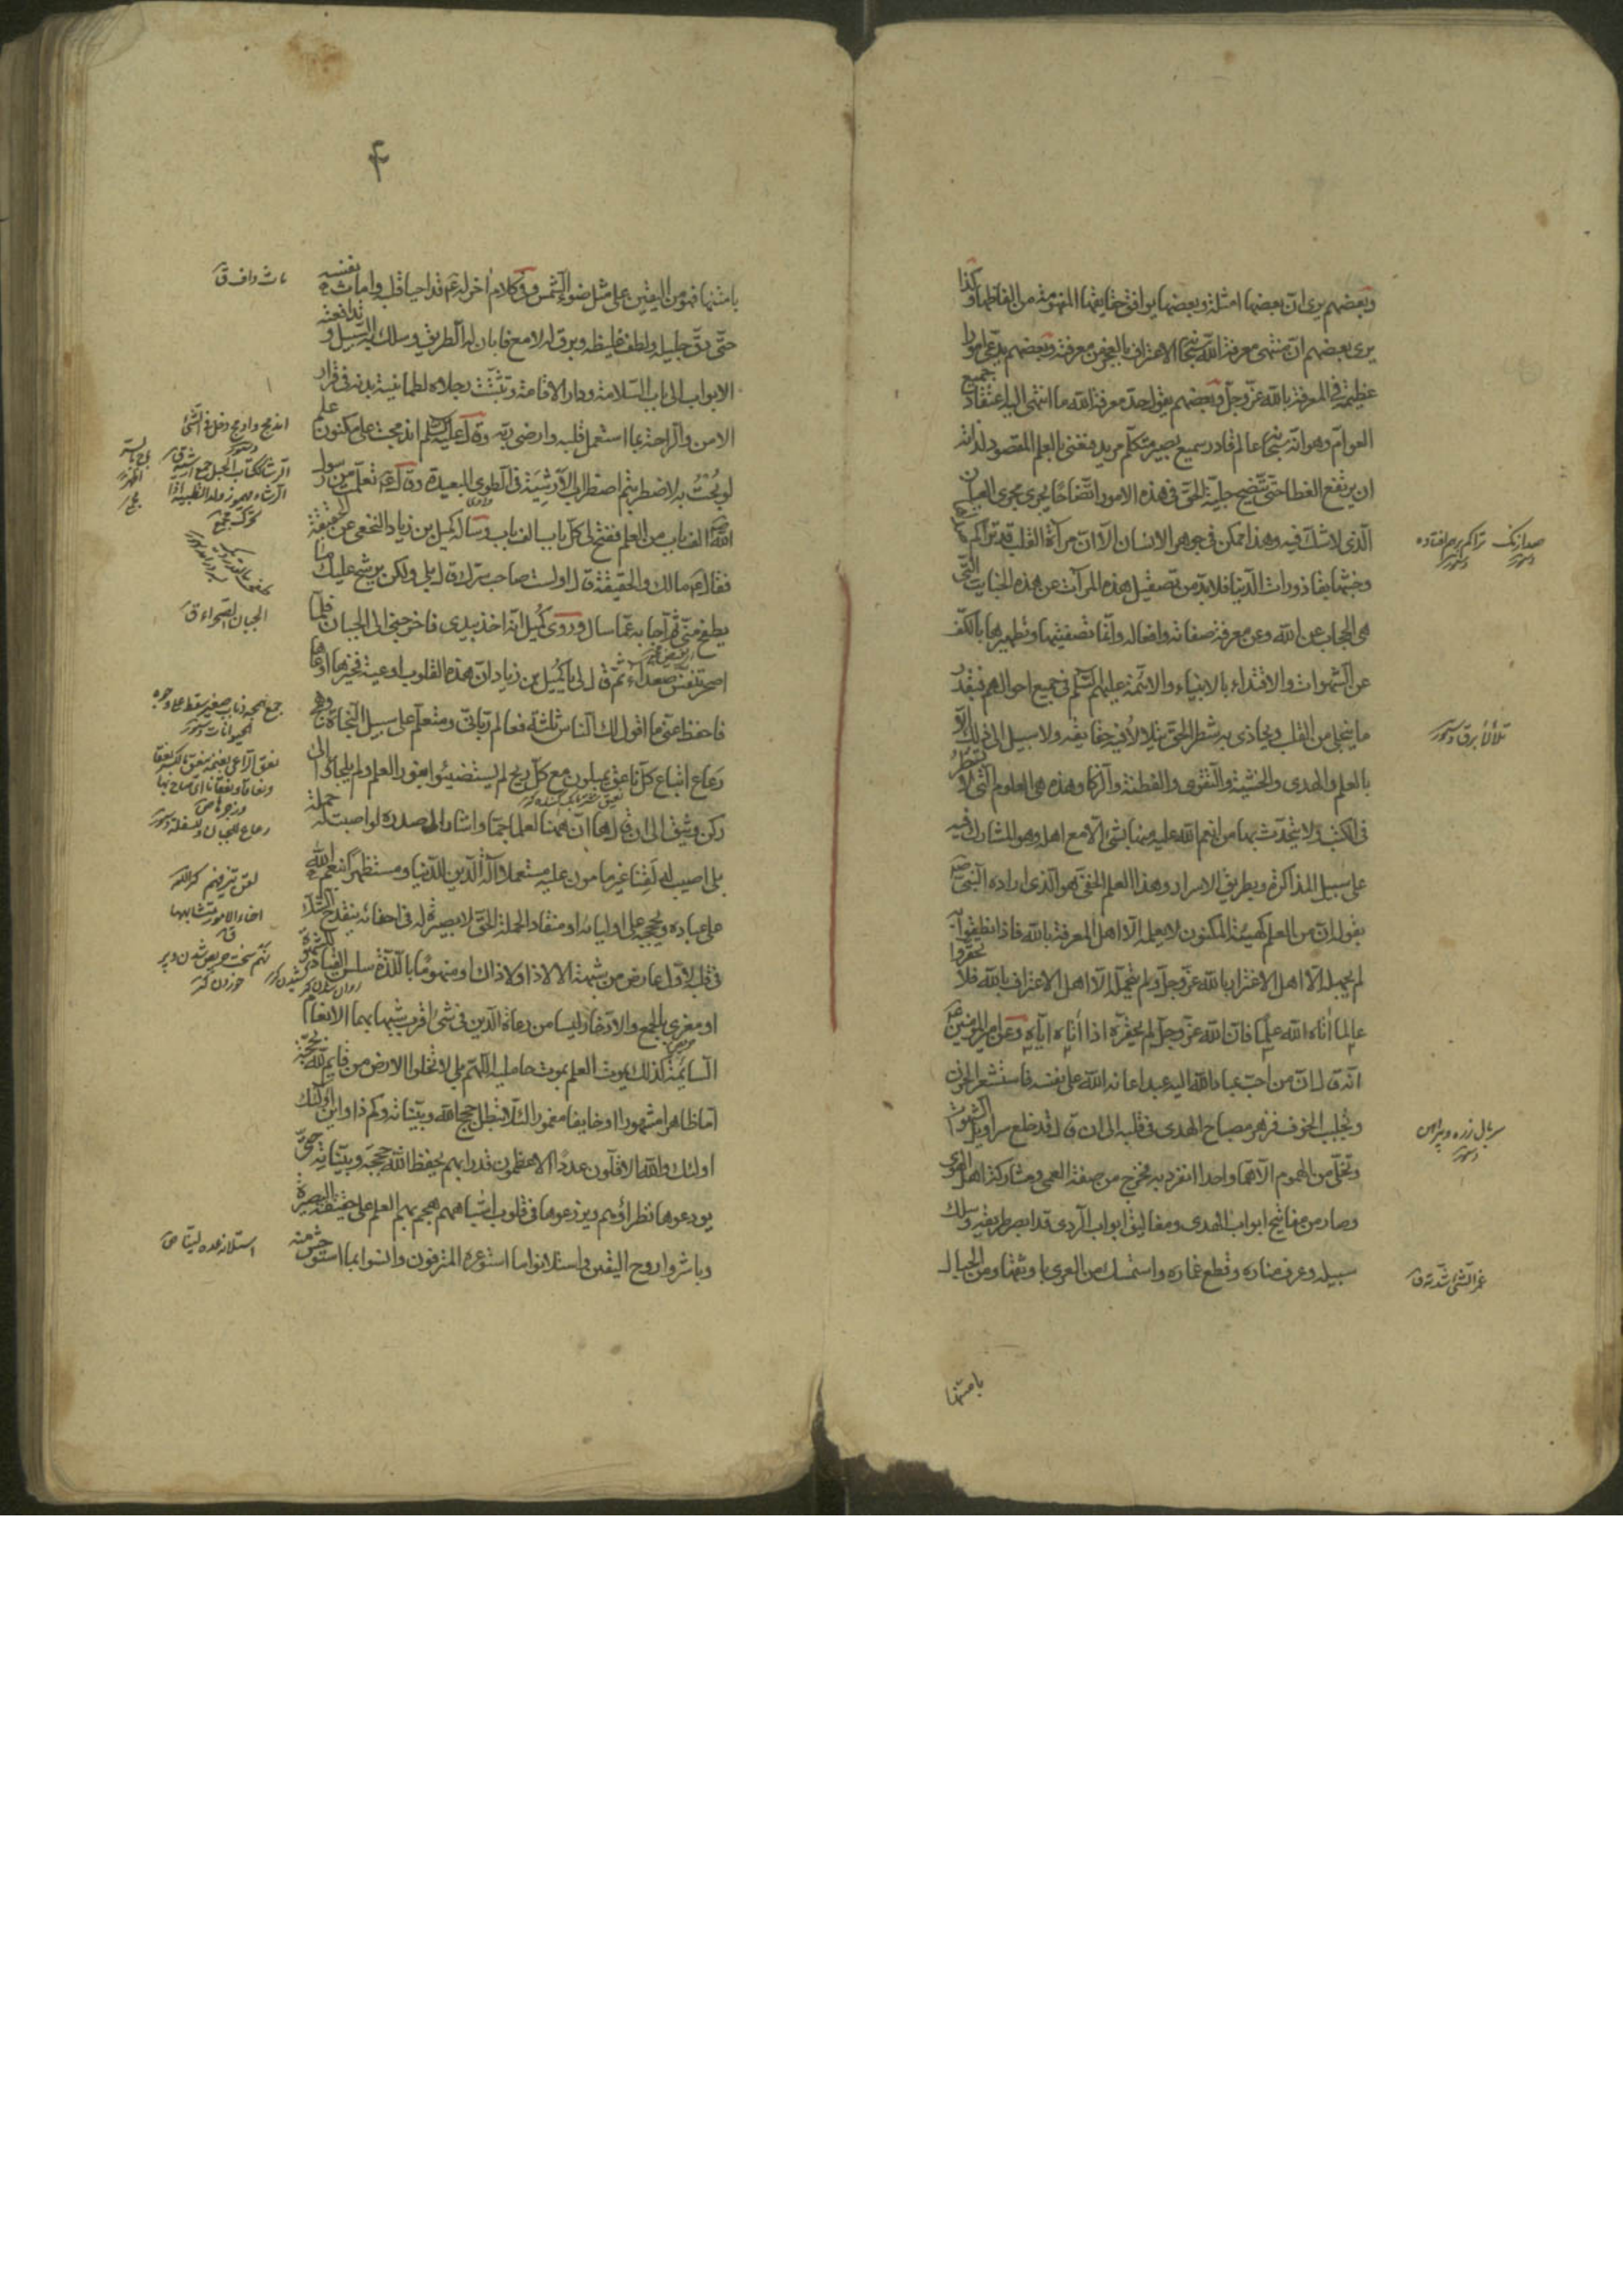 وبعضهم يرى ان بعضها امثلة وبعضها يوافق حقايقها المفهومة من الفاظها وكذا
يرى بعضهم ان منتهى معرفة الله سبحانه الاعتراف بالعجز عن معرفته وبعضهم يدعى امورا
عظيمة فى المعرفة بالله عز وجل وبعضهم يقول حد معرفة الله ما انتهى اليه اعتقاد جميع
العوام وهو انه سبحانه عالم قادر سميع بصير متكلم مريد فنعنى بالعلم المقصود لذاته
ان يرتفع الغطا حتى يتضح جلية الحق فى هذه الامور اتضاحا يجرى مجرى العيان
الذى لا شك فيه وهذا ممكن فى جوهر الانسان الا ان مراة القلب قد تراكم صداها
وخبثها بقاذورات الدنيا فلابد من تصقيل هذه المرآت عن هذه الخباثت التى
هى الحجاب عن الله وعن معرفة صفاته وافعاله وانما تصفيتها وتطهيرها بالكف
عن الشهوات والاقتداء بالانبياء والائمة عليهم السلم فى جميع احوالهم فبقدر
ما ينجلى من القلب ويحاذى به شطر الحق يتلالأ فيه حقايقه ولا سبيل الى ذلك الا
بالعلم والهدى والخشية والتقوى والفطنة والذكا وهذه هى العلوم التى لا تسطر
فى الكتب ولا يتحدث بها من انعم الله عليه منها بشئ الا مع اهله وهو المشارك فيه
على سبيل المذاكرة وبطريق الاسرار وهذا العلم الخفى هو الذى اراده النبى ص
بقوله ان من العلم كهيئة المكنون لا يعلمه الا اهل المعرفة بالله فاذا نطقوا به
لم يجهله الا اهل الاغترار بالله عز وجل ولم يتحمله الا اهل الاعتراف بالله فلا تحقروا
عالما اتاه الله علما فان الله عز وجل لم يحقره اذا اتاه اياه وعن امير المؤمنين ع
انه قال ان من احب عباد الله اليه عبدا اعانه الله على نفسه فاستشعر الحزن
وتجلبب الخوف فزهر مصباح الهدى فى قلبه الى ان قال قد خلع سرابيل الشهوات
وتخلى من الهموم الا هما واحدا انفرد به فخرج من صفة العمى ومشاركة اهل الهوى
وصار من مفاتيح ابواب الهدى ومغاليق ابواب الردى قد ابصر طريقه وسلك
سبيله وعرف مناره وقطع غماره واستمسك من العرى باوثقها ومن الحبال
بامتنها
تراكم برهم افتاده
تلألأ برق دستور
سربال زره و پيراهن
دستور
غمر الشئ شدته ق
۴
بامتنها فهو من اليقين على مثل ضوء الشمس وفى كلام اخر له ع قد احيا قلبه وامات نفسه
حتى دق جليله ولطف غليظه وبرق له لامع فابان له الطريق وسلك به السبيل و تدافعته
الابواب الى باب السلامة ودار الاقامة وتثبتت رجلاه لطمانينة بدنه فى قرار
الامن والراحة بما استعمل قلبه وارضى ربه وقال عليه السلم اندمجت على مكنون علم
لو بحت به لاضطربتم اضطراب الارشية فى الطوى البعيدة وقال ع تعلمت من رسول
الله ص الف باب من العلم ففتح لى كل باب الف باب وساله كميل بن زياد النخعى عن الحقيقة
فقال ع مالك والحقيقة قال اولست صاحب سرك قال بلى ولكن يرشح عليك ما
يطفح منى ثم اجابه عما سال وروى كميل انه اخذ بيدى فاخرجنى الى الجبان فلما
اصحر تنفس صعداء ثم قال لى يا كميل بن زياد ان هذه القلوب اوعية فخيرها اوعاها
فاحفظ عنى ما اقول لك الناس ثلثة فعالم ربانى ومتعلم على سبيل النجاة وهمج
رعاع اتباع كل ناعق يميلون مع كل ريح لم يستضيئوا بنور العلم ولم يلجاوا الى
ركن وثيق الى ان قال ها ان ههنا لعلما جما واشار الى صدره لو اصبت له حملة
بلى اصيب له لقنا غير مامون عليه مستعملا آلة الدين للدنيا ومستظهرا بنعم الله
على عباده وبحججه على اوليائه او منقاد الحملة الحق لا بصيرة له فى احنائه ينقدح الشك
فى قلبه لاول عارض من شبهة الا لا ذا ولا ذاك او منهوما باللذة سلس القياد للشهوة
او مغرى بالجمع والادخار ليسا من رعاة الدين فى شئ اقرب شبها بهما الانعام
السائمة كذلك يموت العلم بموت حامليه اللهم بلى لا تخلوا الارض من قايم لله بحجة
اما ظاهرا مشهورا او خايفا مغمورا لئلا تبطل حجج الله وبيناته وكم ذا واين اولئك
اولئك والله الاقلون عددا الاعظمون قدرا بهم يحفظ الله حججه وبيناته حتى
يودعوها نظراءهم ويزرعوها فى قلوب اشباههم هجم بهم العلم على حقيقة البصيرة
وباشروا روح اليقين واستلانوا ما استوعره المترفون وانسوا بما استوحش منه
اندمج وادمج دخل فى الشئ
الجبان الصحراء ق
رعاع الجهال والسفلة دستور
استلانه عده لينا ص